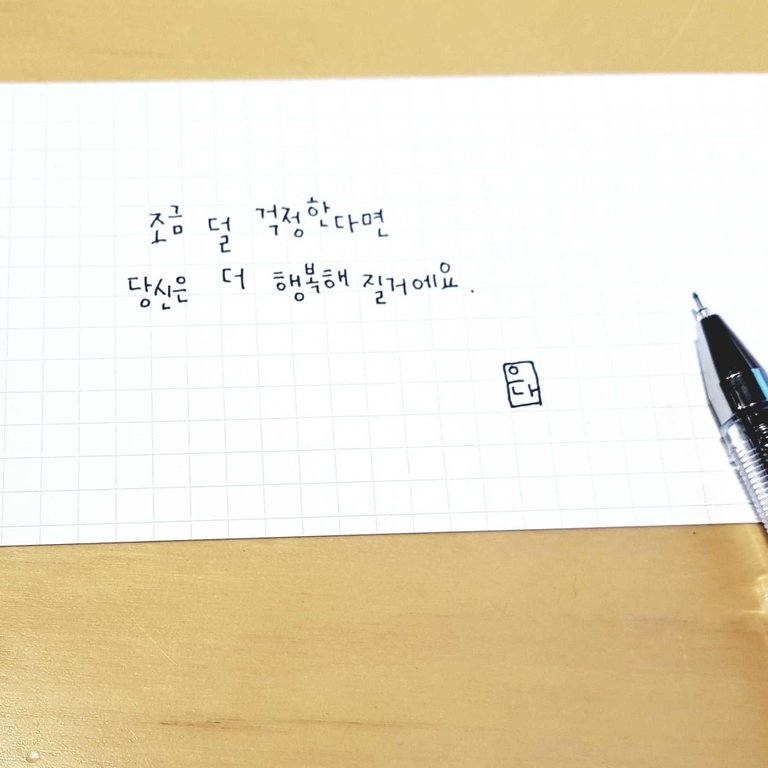 조금 덜 걱정한다면
당신은 더 행복해 질거에요.